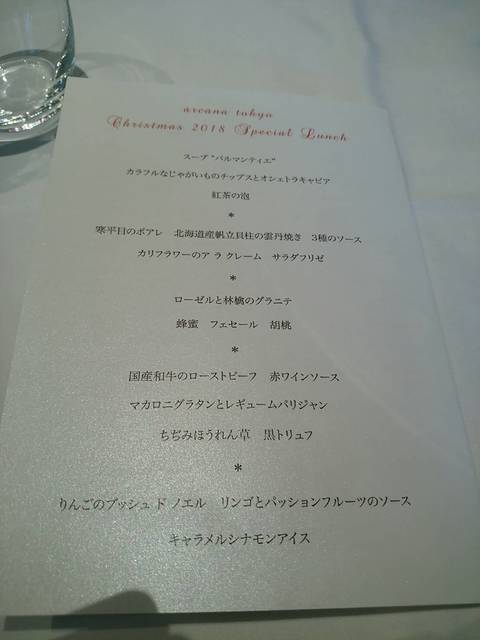 arcana tokyo
Christmas 2018 Special Lunch
スープ "パルマンティエ"
カラフルなじゃがいものチップスとオシェトラキャビア
紅茶の泡
*
寒平目のポアレ　北海道産帆立貝柱の雲丹焼き　3種のソース
カリフラワーのア ラ クレーム　サラダフリゼ
*
ローゼルと林檎のグラニテ
蜂蜜　フェセール　胡桃
*
国産和牛のローストビーフ　赤ワインソース
マカロニグラタンとレギュームパリジャン
ちぢみほうれん草　黒トリュフ
*
りんごのブッシュ ド ノエル　リンゴとパッションフルーツのソース
キャラメルシナモンアイス